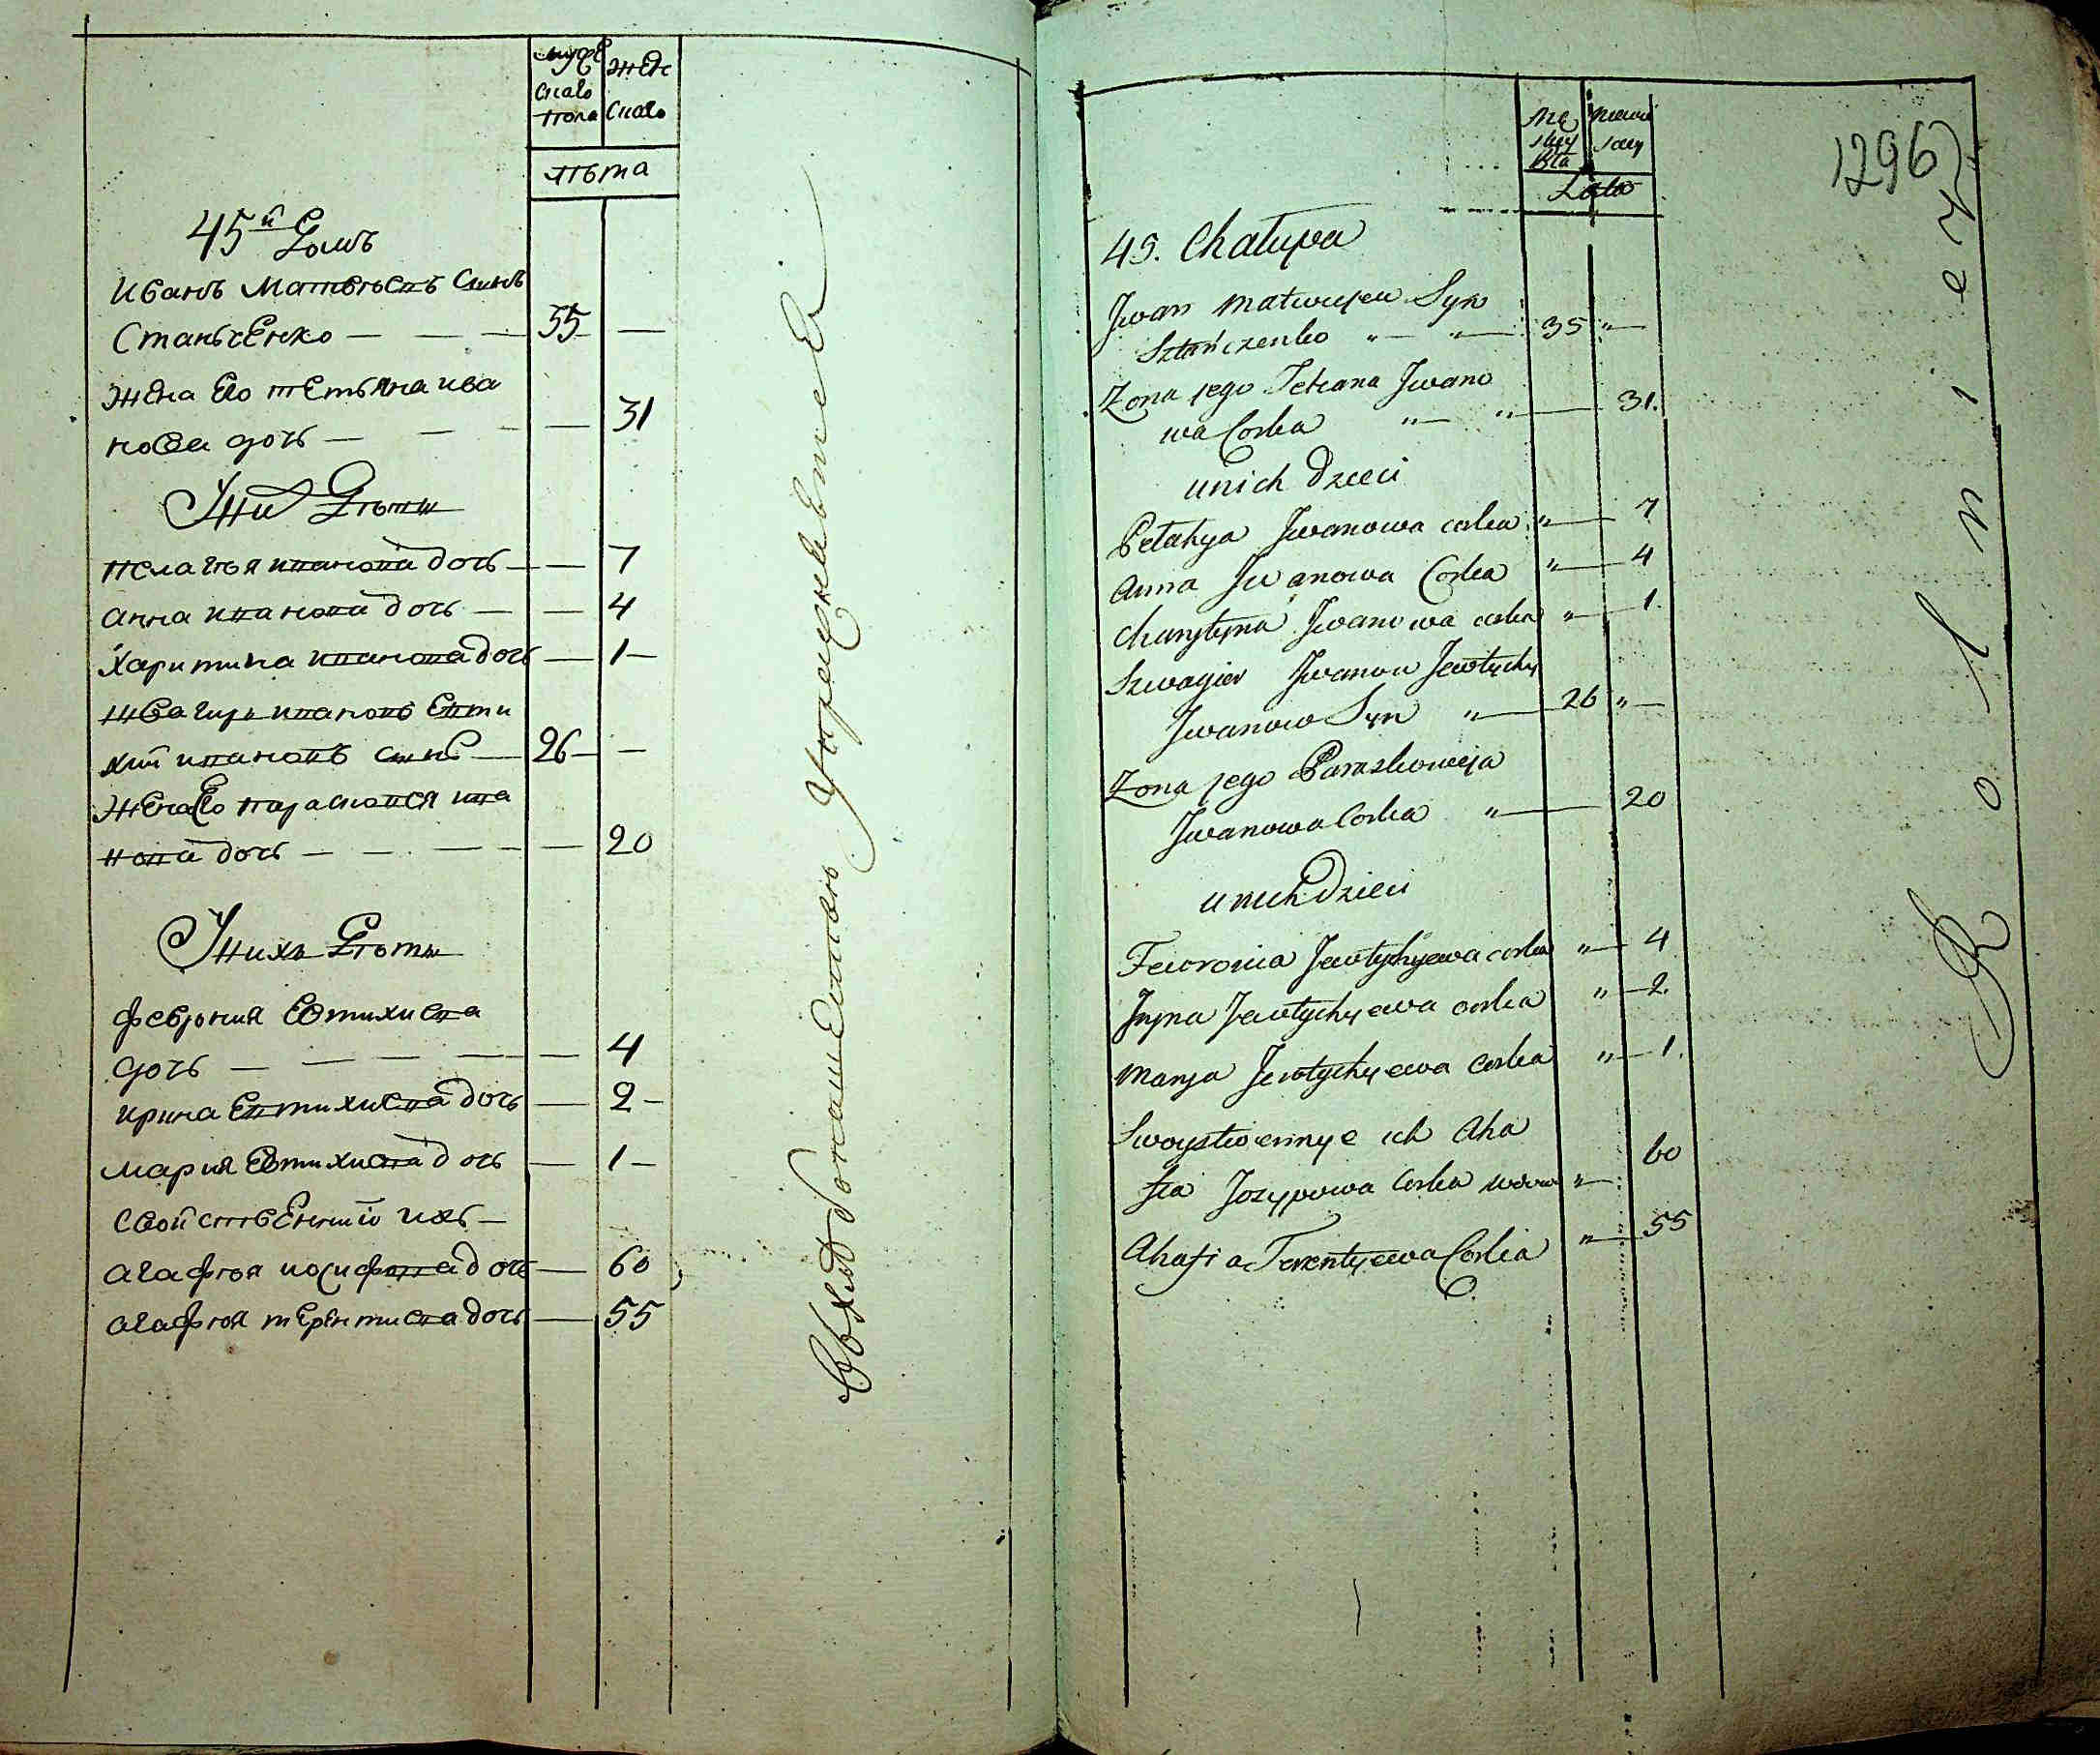 мужескаго пола
женскаго
лѣта
45й Домъ
Иванъ Матвѣевъ Сынъ
Станьченко — — — 55 —
Жена Его тетьяна ива
нова дочь — — — — 31
У них дѣти
пелагья иванова дочь — — 7
анна иванова дочь — — 4
харитина иванова дочь — 1 —
швагиръ ивановъ Евти
хий ивановъ сынъ — 26 — —
Жена Его парасковея ива
нова дочь — — — — — 20
У нихъ Дѣти
феврония Евтихиева
дочь — — — — — 4
ирина Евтихиева дочь — 2 —
мария Евтихиева дочь — 1 —
свойственныи ихъ —
агафия иосифова дочь — 60
агафия терентиева дочь — 55
1296
Lata
45. Chałupa
Jwan Matwiejew Syn
Sztańczenko „ — „ — 35 „ —
Zona jego Tetiana Jwano
wa Corka „ — „ — 31.
u nich Dzieci
Pełahya Jwanowa corka „ — 7
Anna Jwanowa Corka „ — 4
Charytyna Jwanowa corka „ — 1.
Szwagier Jwanow Jewtychy
Jwanow Syn „ — 26 „ —
Zona jego Paraskowieja
Jwanowa Corka „ — 20
u nich Dzieci
Fewronia Jewtychyewa corka „ — 4
Jryna Jewtychyewa corka „ — 2.
Marya Jewtychyewa corka „ — 1.
Swoystwennye ich Aha
fia Jozypowa Corka wdowa „ — 60
Ahafia Terentyewa Corka „ — 55